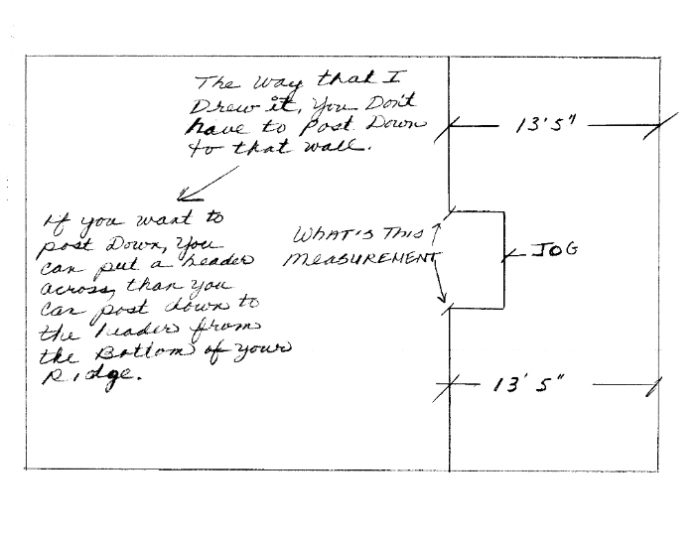 The way that I
Drew it, You Don't
have to Post Down
to that wall.
13'5"
If you want to
post Down, You
can put a header
across, than you
can post down to
the header from
the Bottom of your
Ridge.
WHAT'S THIS
MEASUREMENT
JOG
13'5"